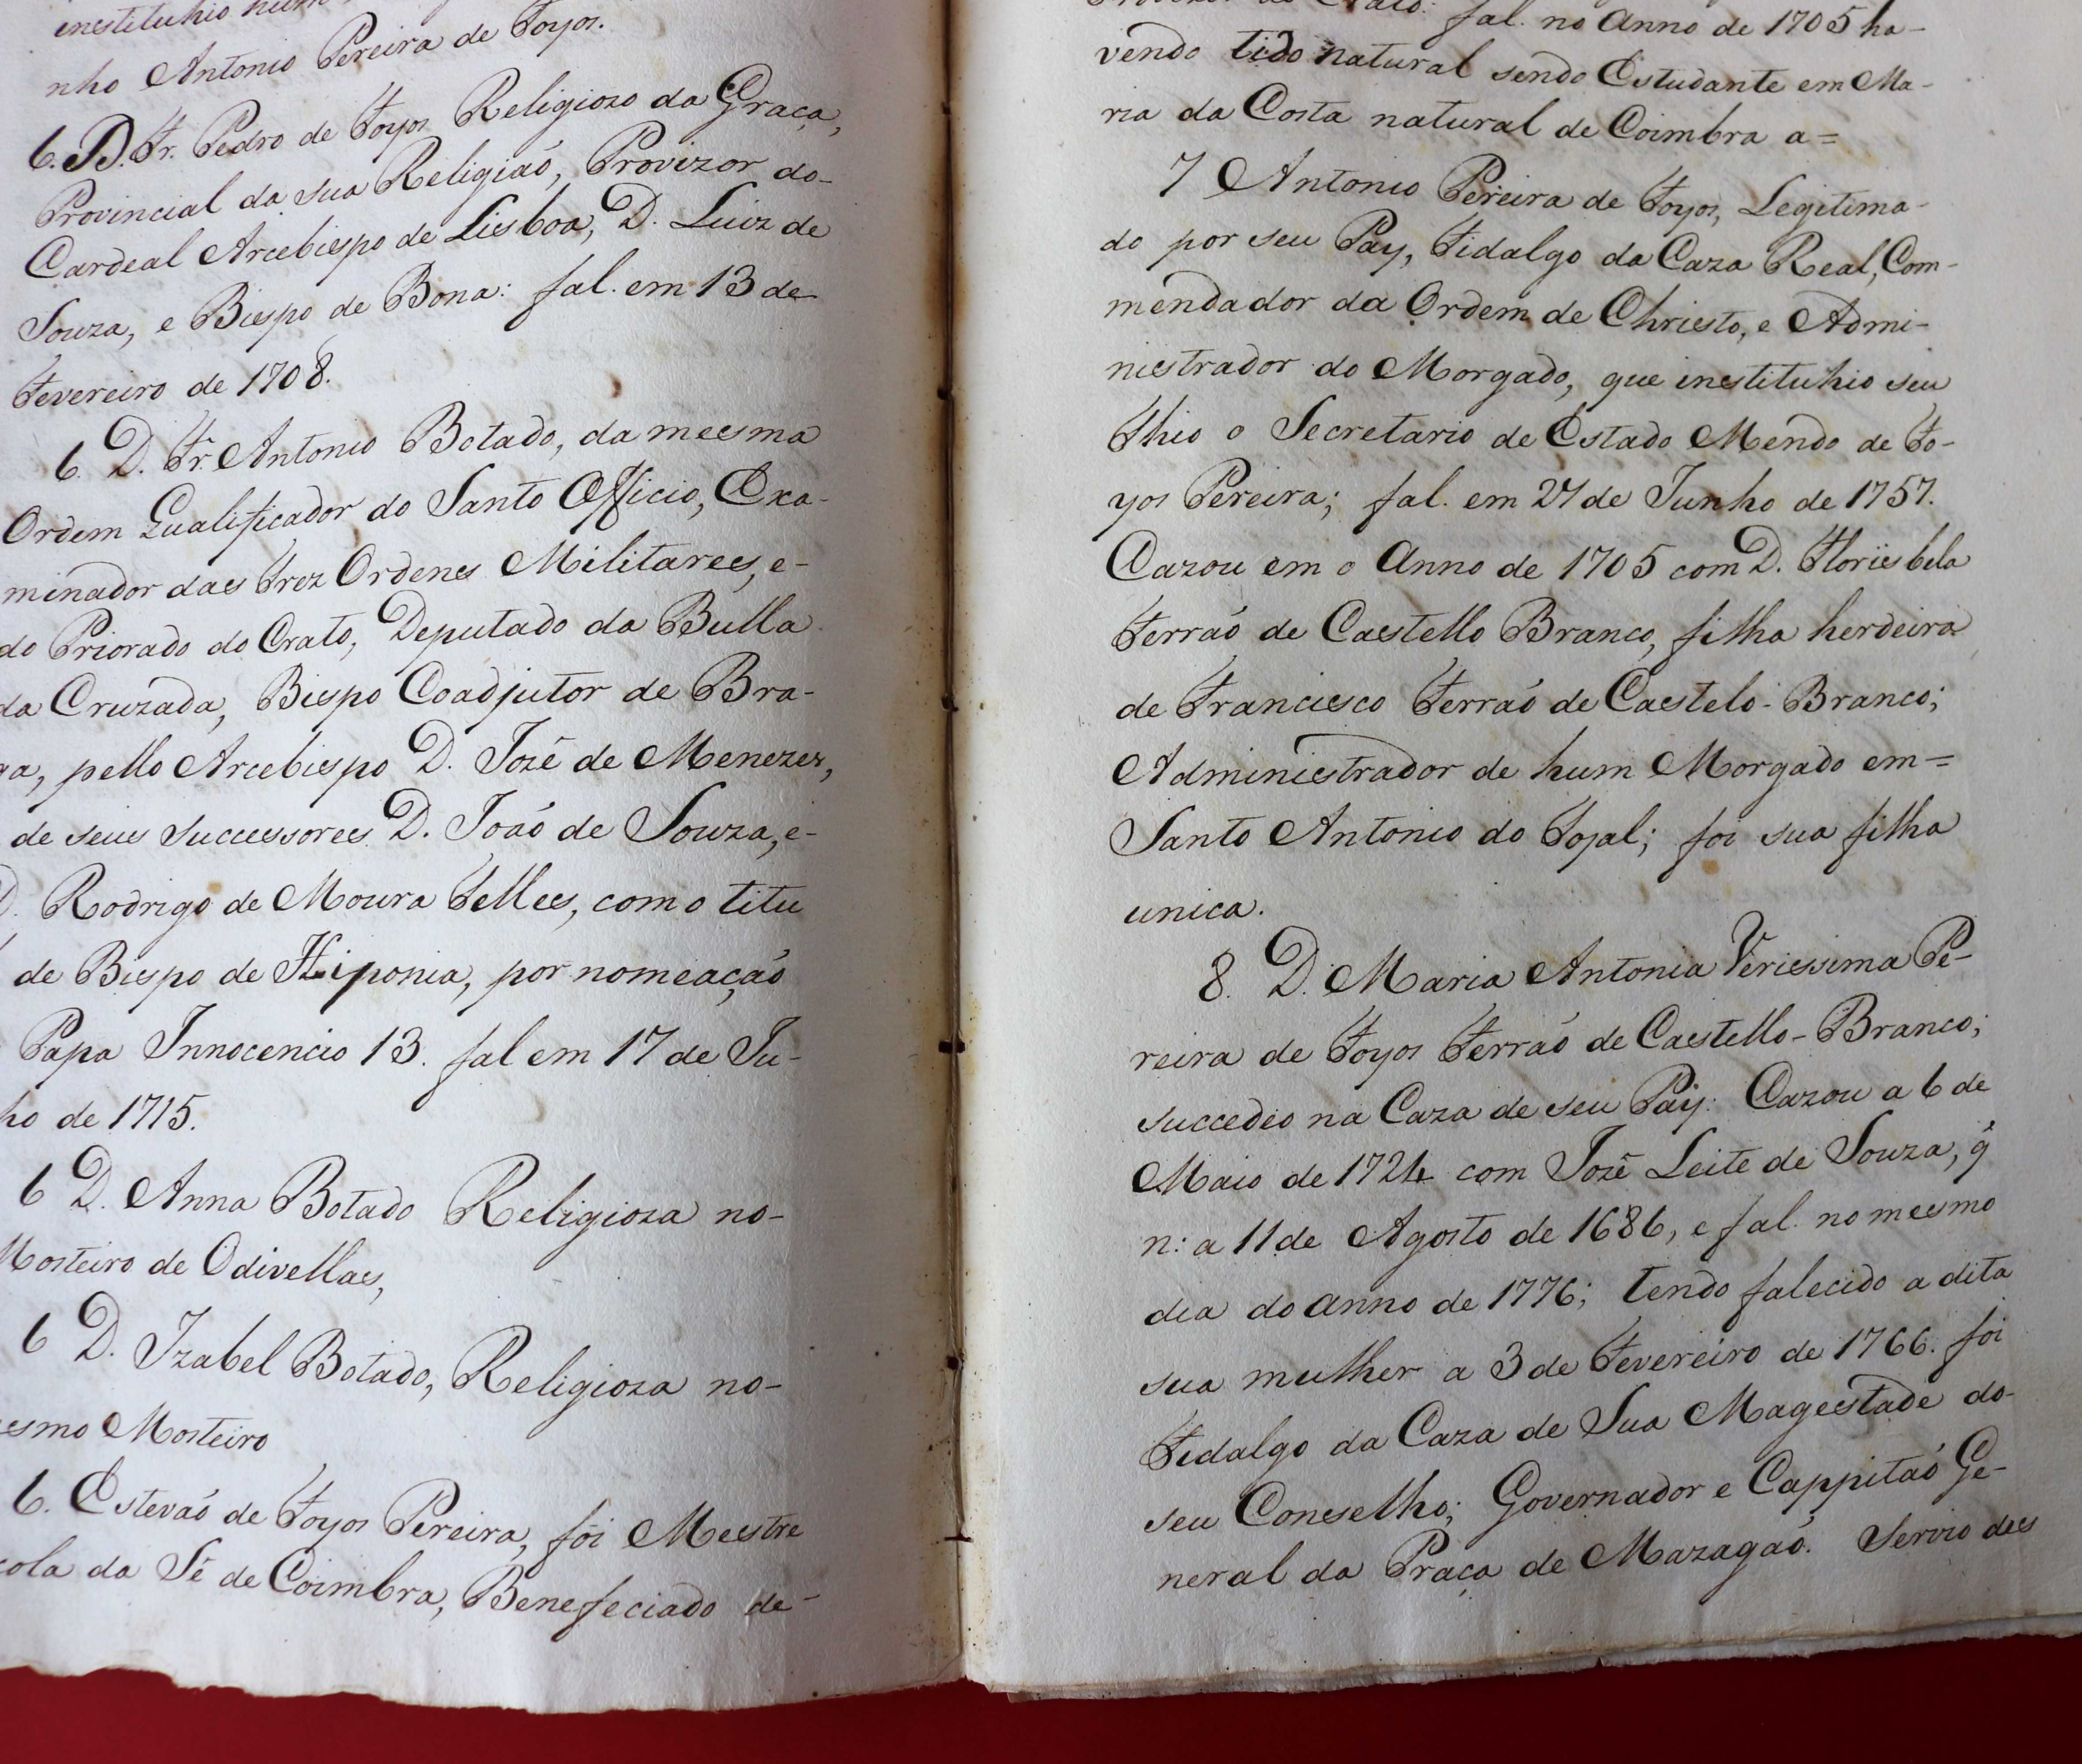 instituhio
nho Antonio Pereira de Foyos.
6. D. Fr. Pedro de Foyos Religiozo da Graça,
Provincial da sua Religiaó, Provizor do-
Cardeal Arcebispo de Lisboa, D. Luiz de
Souza, e Bispo de Bona: fal. em 13 de
Fevereiro de 1708.
6. D. Fr. Antonio Botado, da mesma
Ordem Qualificador do Santo Officio, Exa-
minador das Trez Ordenes Militares, e-
do Priorado do Crato, Deputado da Bulla
da Cruzada, Bispo Coadjutor de Bra-
ga, pello Arcebispo D. Jozê de Menezes,
de seus successores D. Joáo de Souza, e-
D. Rodrigo de Moura Telles, com o titu
de Bispo de Hiponia, por nomeaçaó
Papa Innocencio 13. fal em 17 de Ju-
ho de 1715.
6 D. Anna Botado Religioza no-
Mosteiro de Odivellas,
6 D. Izabel Botado, Religioza no-
esmo Mosteiro
6. Estevaó de Foyos Pereira, foi Mestre
cola da Sê de Coimbra, Benefeciado de-
Crato: fal. no Anno de 1705 ha-
vendo tido natural sendo Estudante em Ma-
ria da Costa natural de Coimbra a=
7 Antonio Pereira de Foyos, Legitima-
do por seu Pay, Fidalgo da Caza Real, Com-
mendador da Ordem de Christo, e Admi-
nistrador do Morgado, que instituhio seu
Thio o Secretario de Estado Mendo de Fo-
yos Pereira; fal. em 27 de Junho de 1757.
Cazou em o Anno de 1705 com D. Florisbela
Ferraó de Castello Branco, filha herdeira
de Francisco Ferraó de Castelo-Branco;
Administrador de hum Morgado em=
Santo Antonio do Tojal; foi sua filha
unica.
8. D. Maria Antonia Verissima Pe-
reira de Foyos Ferraó de Castello-Branco;
succedeo na Caza de seu Pay: Cazou a 6 de
Maio de 1724 com Jozê Leite de Souza, q̃
n: a 11 de Agosto de 1686, e fal. no mesmo
dia do anno de 1776; tendo falecido a dita
sua mulher a 3 de Fevereiro de 1766. foi
Fidalgo da Caza de Sua Magestade do-
seu Conselho; Governador e Cappitaó Ge-
neral da Praça de Mazagaó. Servio des